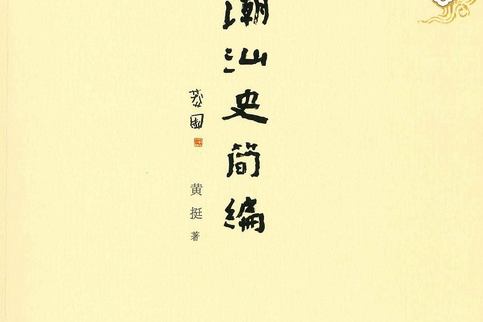 潮汕史简编
黄挺 著